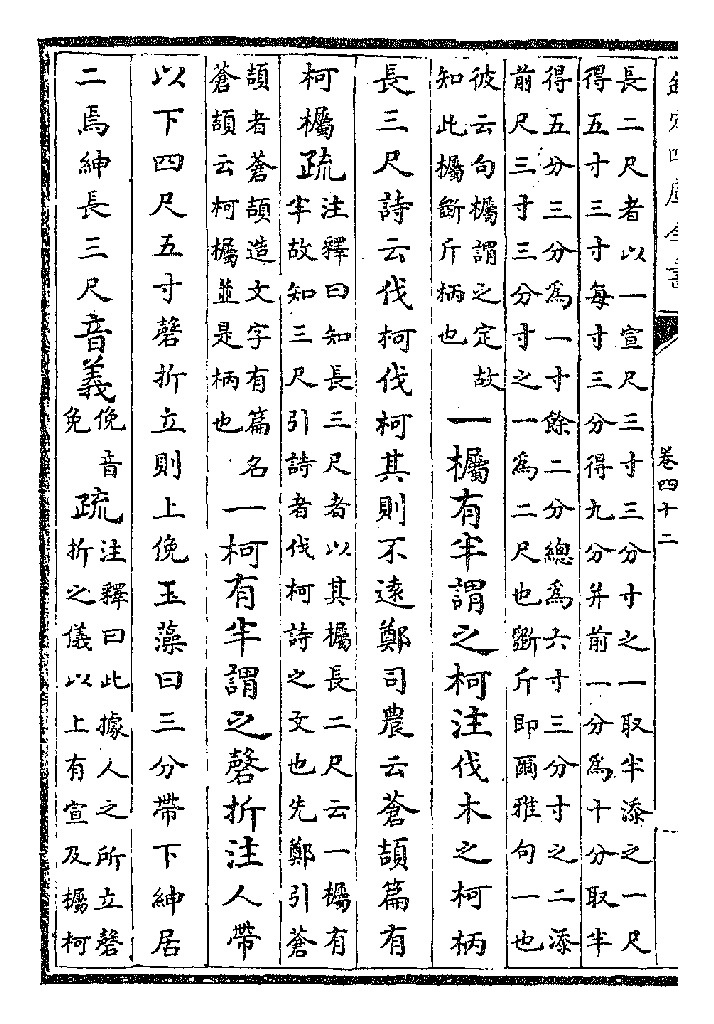 欽定四庫全書
卷四十二
長二尺者以一宣尺三寸三分寸之一取半添之一尺
得五寸三寸每寸三分得九分并前一分為十分取半
得五分三分為一寸餘二分總為六寸三分寸之二添
前尺三寸三分寸之一為二尺也斲斤即爾雅句一也
彼云句欘謂之定故
知此欘斲斤柄也
一欘有半謂之柯注伐木之柯柄
長三尺詩云伐柯伐柯其則不遠鄭司農云蒼頡篇有
柯欘疏
注釋曰知長三尺者以其欘長二尺云一欘有
半故知三尺引詩者伐柯詩之文也先鄭引蒼
頡者蒼頡造文字有篇名
蒼頡云柯欘並是柄也
一柯有半謂之磬折注人帶
以下四尺五寸磬折立則上俛玉藻曰三分帶下紳居
二焉紳長三尺音義
俛音
免
疏
注釋曰此據人之所立磬
折之儀以上有宣及欘柯